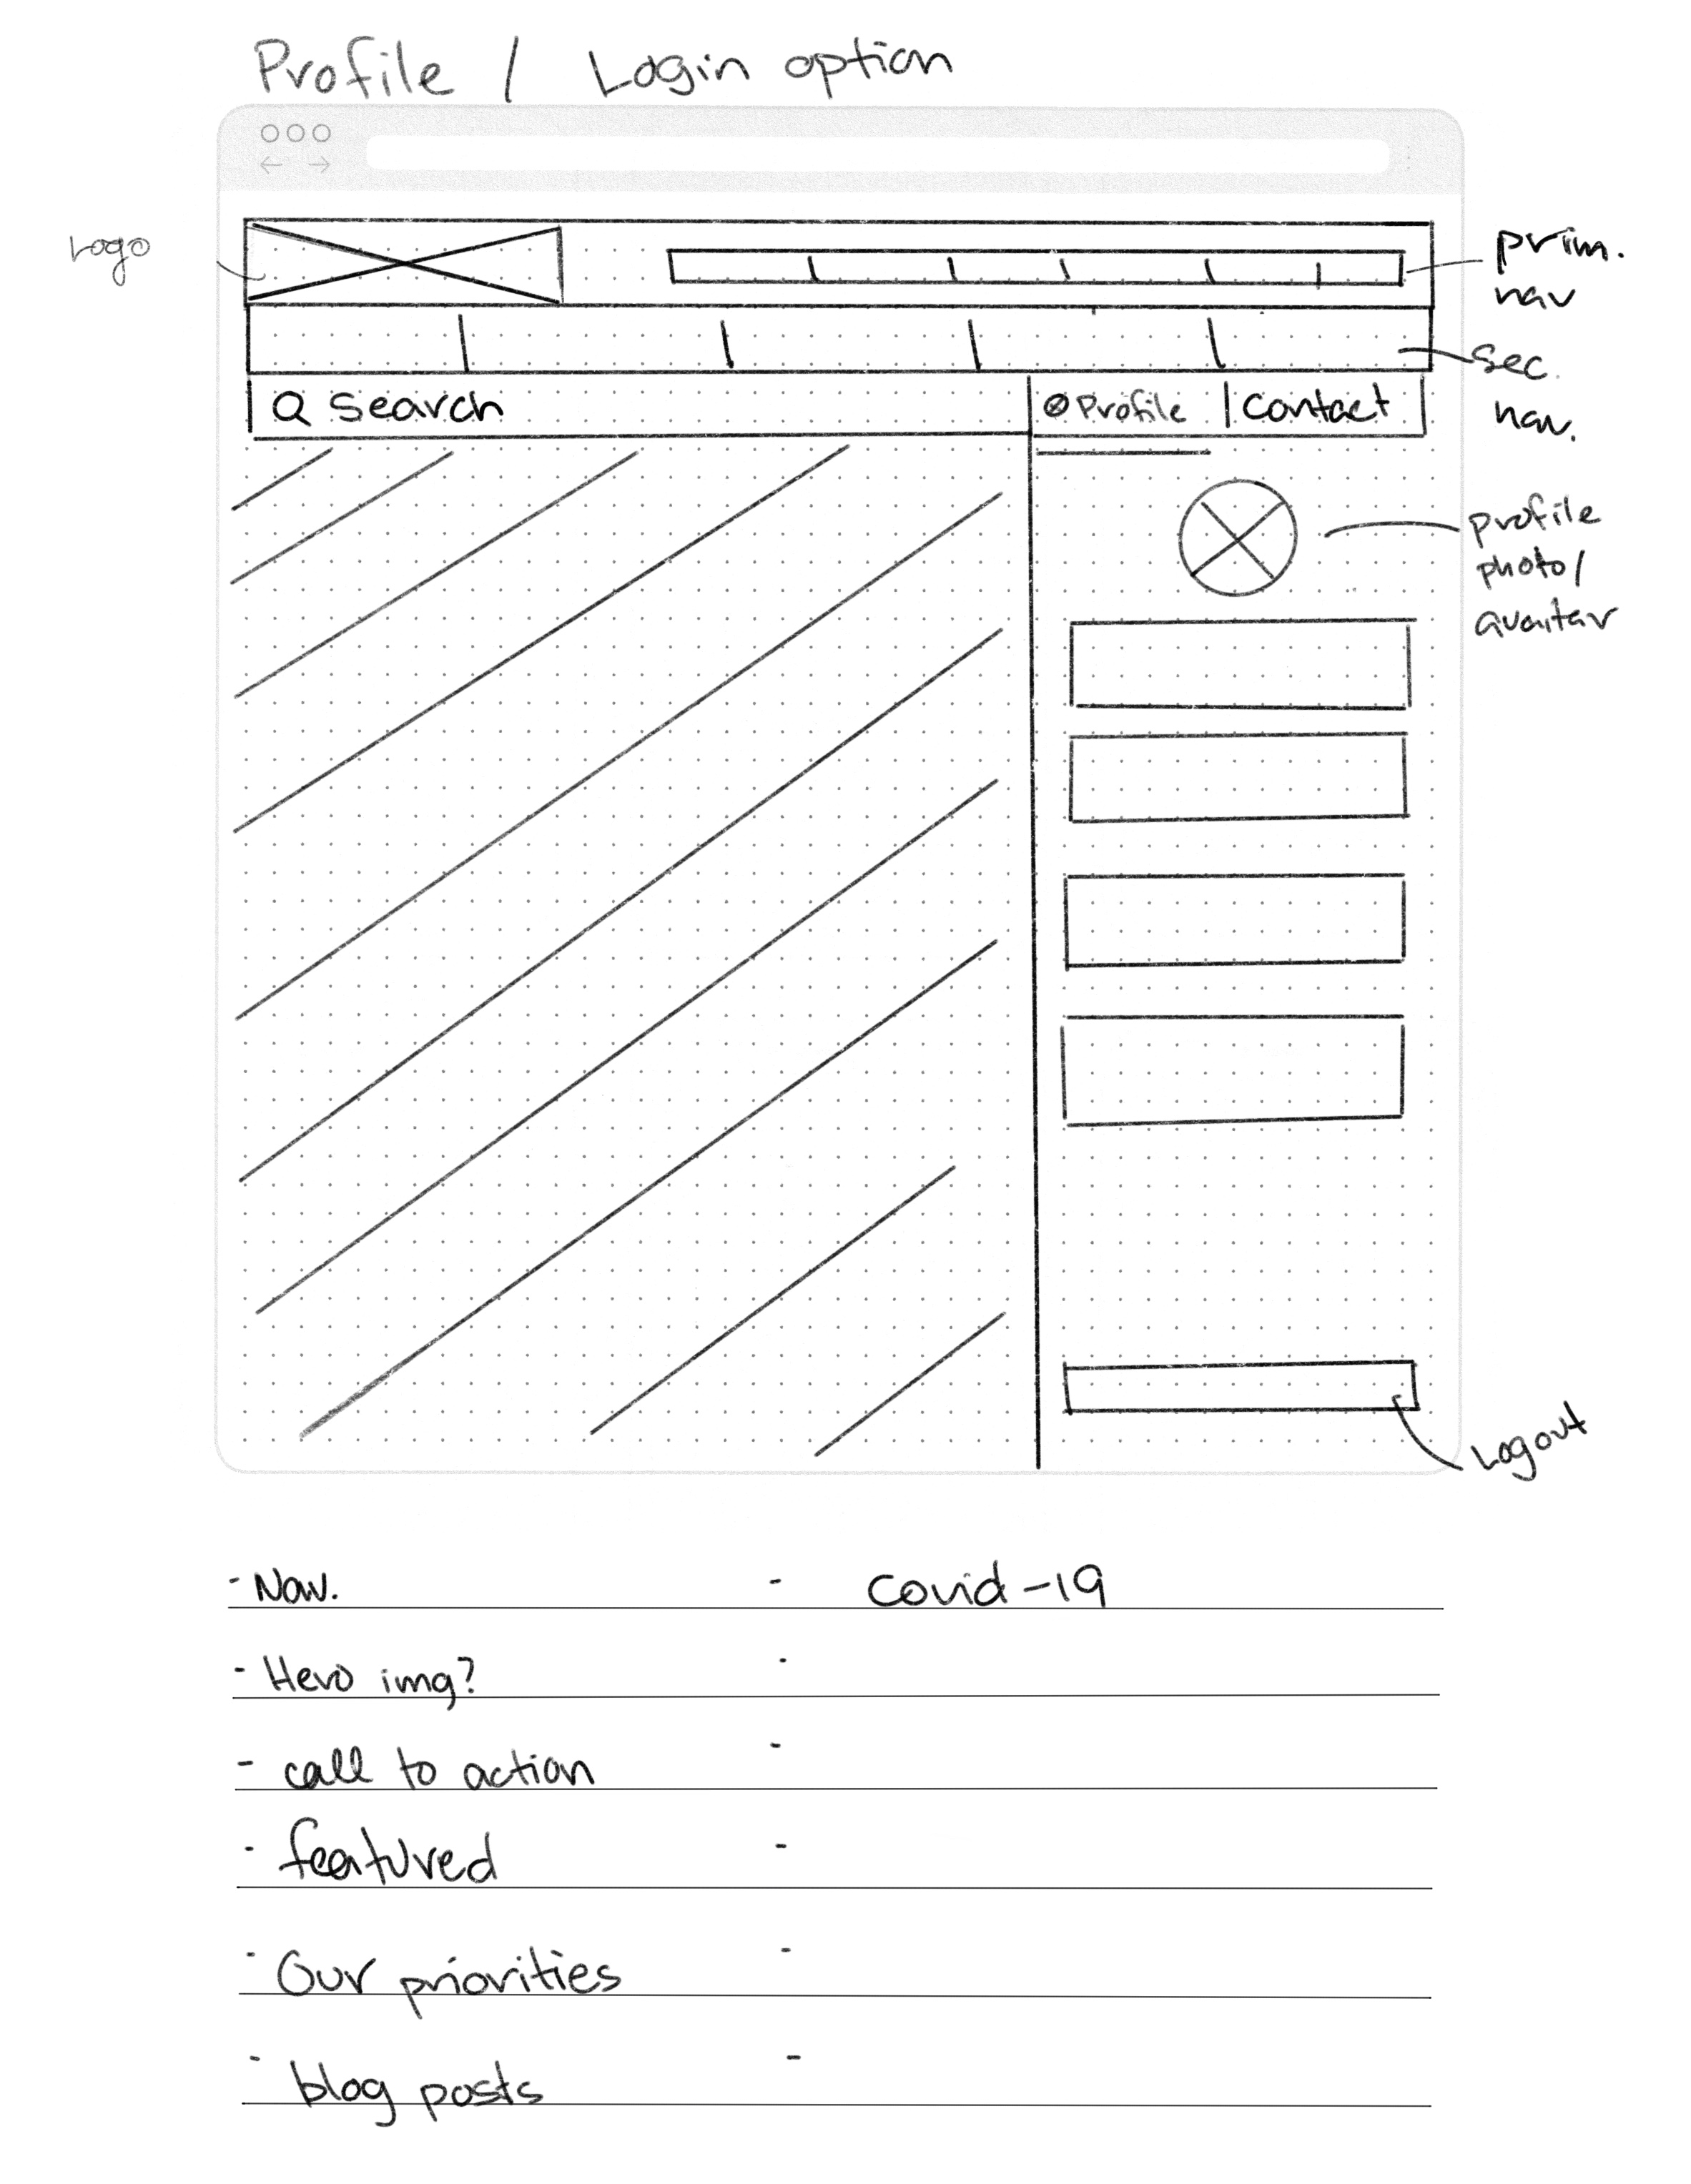 Profile / Login option
Logo
prim.
nav
sec.
nav.
Search
Profile
Contact
profile
photo/
avaitar
Logout
- Nav.
- Covid-19
- Hero img?
-
- call to action
-
- featured
-
- Our priorities
-
- blog posts
-